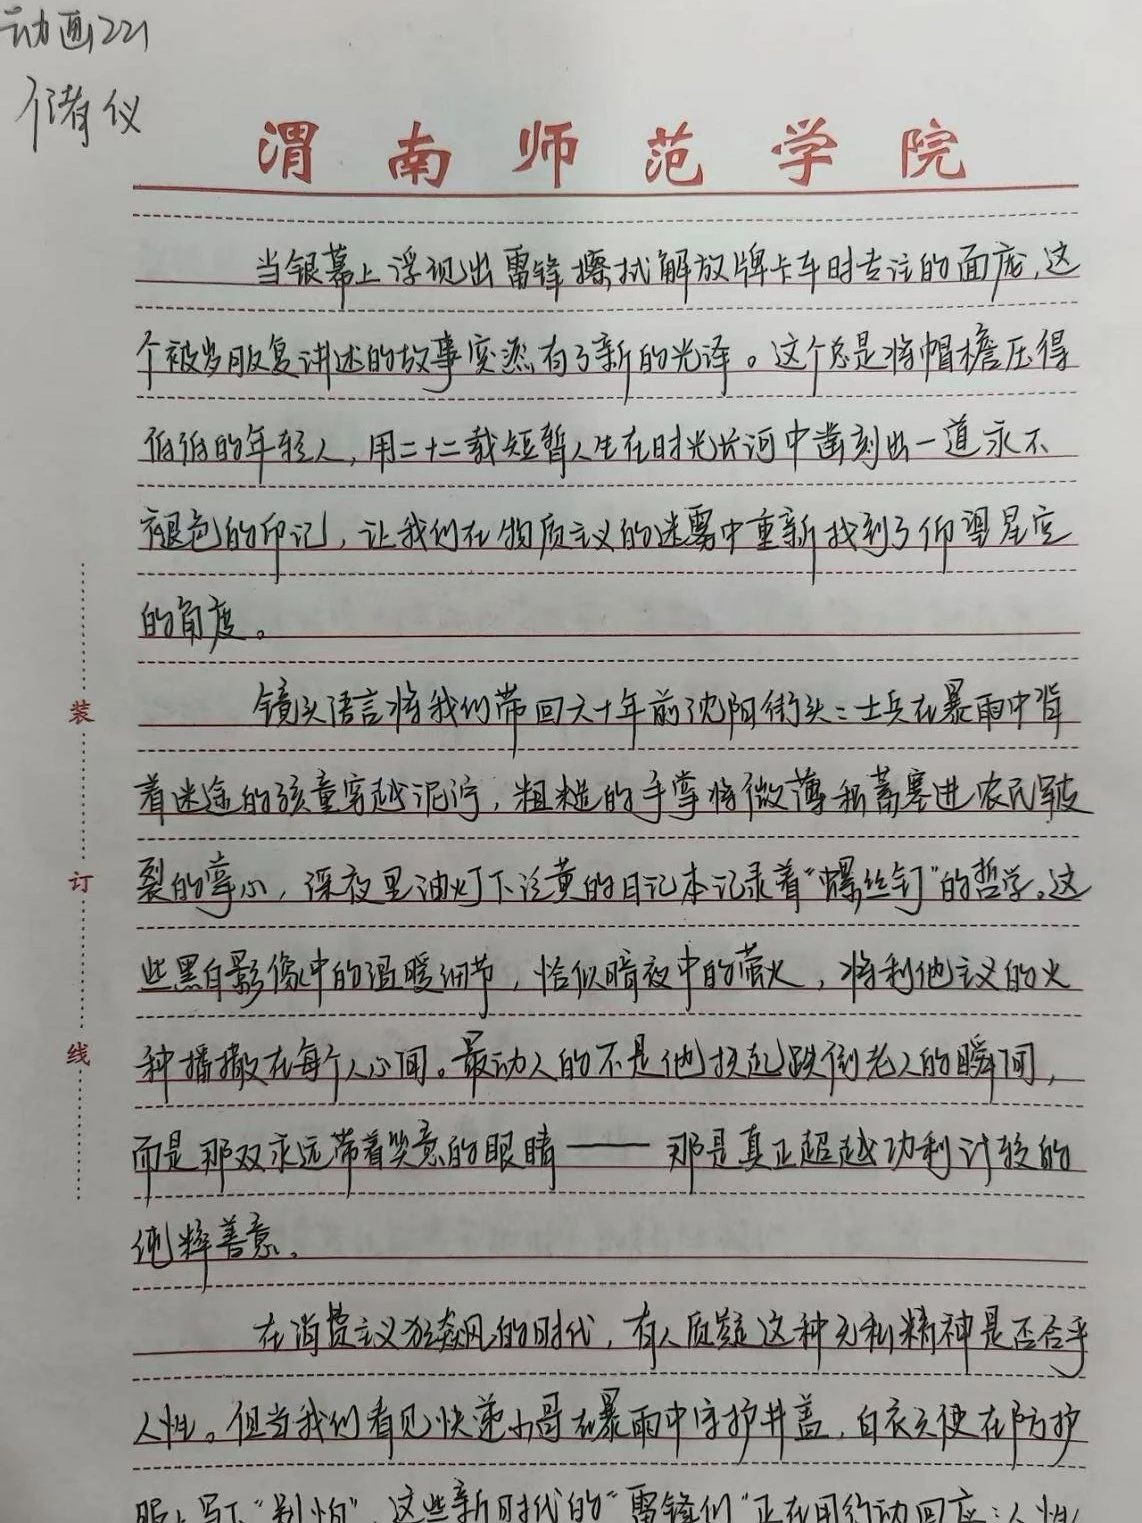 动画221
储仪
渭南师范学院
当银幕上浮现出雷锋擦拭解放牌卡车时专注的面庞,这
个被岁月反复讲述的故事突然有了新的光泽。这个总是将帽檐压得
低低的年轻人,用二十二载短暂人生在时光长河中凿刻出一道永不
褪色的印记,让我们在物质主义的迷雾中重新找到了仰望星空
的角度。
镜头语言将我们带回六十年前沈阳街头:士兵在暴雨中背
着迷途的孩童穿越泥泞,粗糙的手掌将微薄积蓄塞进农民皲
裂的掌心,深夜里油灯下泛黄的日记本记录着“螺丝钉”的哲学。这
些黑白影像中的温暖细节,恰似暗夜中的萤火,将利他主义的火
种播撒在每个人心间。最动人的不是他扶起跌倒老人的瞬间,
而是那双永远带着笑意的眼睛——那是真正超越功利计较的
纯粹善意。
在消费主义狂飙的时代,有人质疑这种无私精神是否合乎
人性。但当我们看见快递小哥在暴雨中守护井盖,白衣天使在防护
服上写下“别怕”,这些新时代的“雷锋们”正在用行动回应:人性
装
订
线